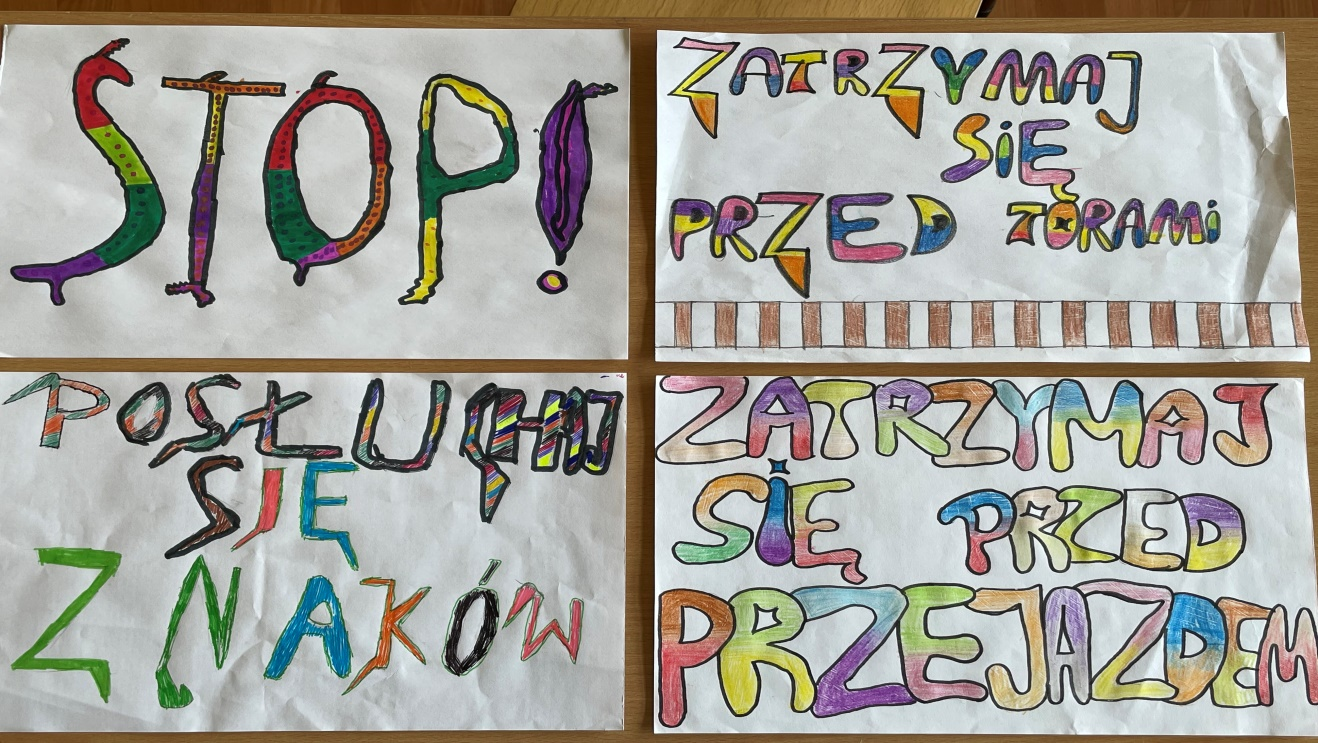 STOP!
ZATRZYMAJ
SIĘ
PRZED TORAMI
POSŁUCHAJ
SIĘ
ZNAKÓW
ZATRZYMAJ
SIĘ PRZED
PRZEJAZDEM